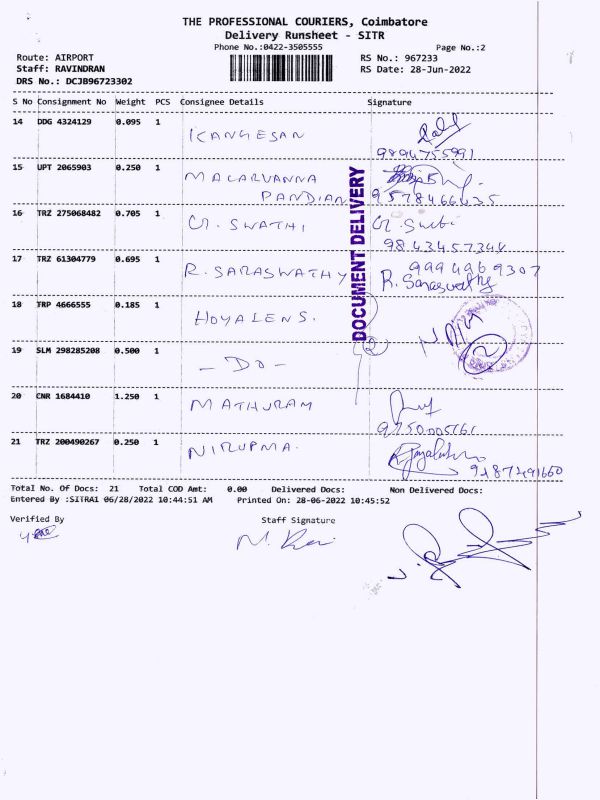 THE PROFESSIONAL COURIERS, Coimbatore
Delivery Runsheet - SITR
Phone No.:0422-3505555 Page No.:2
Route: AIRPORT RS No.: 967233
Staff: RAVINDRAN RS Date: 28-Jun-2022
DRS No.: DCJB96723302
S No Consignment No Weight PCS Consignee Details Signature
14 DDG 4324129 0.095 1 KANGESAN
9894755991
15 UPT 2065903 0.250 1 MALARVANNA
PANDIAN 9578466435
16 TRZ 275068482 0.705 1 G. SWATHI G. Swathi
9843457348
17 TRZ 61304779 0.695 1 R. SARASWATHY 9994969307
R. Saraswathy
18 TRP 4666555 0.185 1 HOYALENS.
19 SLM 298285208 0.500 1 - DO - 2 2
20 CNR 1684410 1.250 1 MATHURAM
21 TRZ 200490267 0.250 1 NIRUPMA.
9487491660
DOCUMENT DELIVERY
Total No. Of Docs: 21 Total COD Amt: 0.00 Delivered Docs: Non Delivered Docs:
Entered By :SITRA1 06/28/2022 10:44:51 AM Printed On: 28-06-2022 10:45:52
Verified By Staff Signature